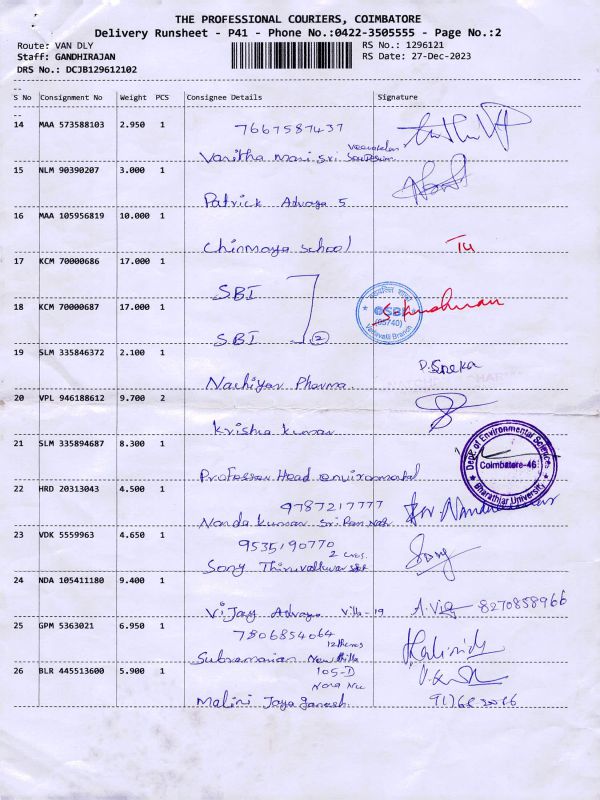 THE PROFESSIONAL COURIERS, COIMBATORE
Delivery Runsheet - P41 - Phone No.:0422-3505555 - Page No.:2
Route: VAN DLY
RS No.: 1296121
Staff: GANDHIRAJAN
RS Date: 27-Dec-2023
DRS No.: DCJB129612102
S No Consignment No Weight PCS Consignee Details Signature
14 MAA 573588103 2.950 1 7667587437
Vanitha Mani Sri
15 NLM 90390207 3.000 1
Patrick Advaya 5
16 MAA 105956819 10.000 1
Chinmaya School
17 KCM 70000686 17.000 1
SBI
18 KCM 70000687 17.000 1
SBI 2
SBI
(05740)
Vadavalli Branch
19 SLM 335846372 2.100 1
D. Sneka
Nachiyar Pharma
20 VPL 946188612 9.700 2
Krishna Kumar
21 SLM 335894687 8.300 1
Professor Head environmental
Dept of Environmental Sciences
Coimbatore-46
Bharathiar University
22 HRD 20313043 4.500 1
9787217777
Nanda Kumar Sri Ram
23 VDK 5559963 4.650 1 9535190770
Song Thiruvalluvar
24 NDA 105411180 9.400 1
Vijay Advaya Villa-19
8270858966
25 GPM 5363021 6.950 1 7806854064
Subramanian
26 BLR 445513600 5.900 1 105-D
Malini Jaya Ganesh